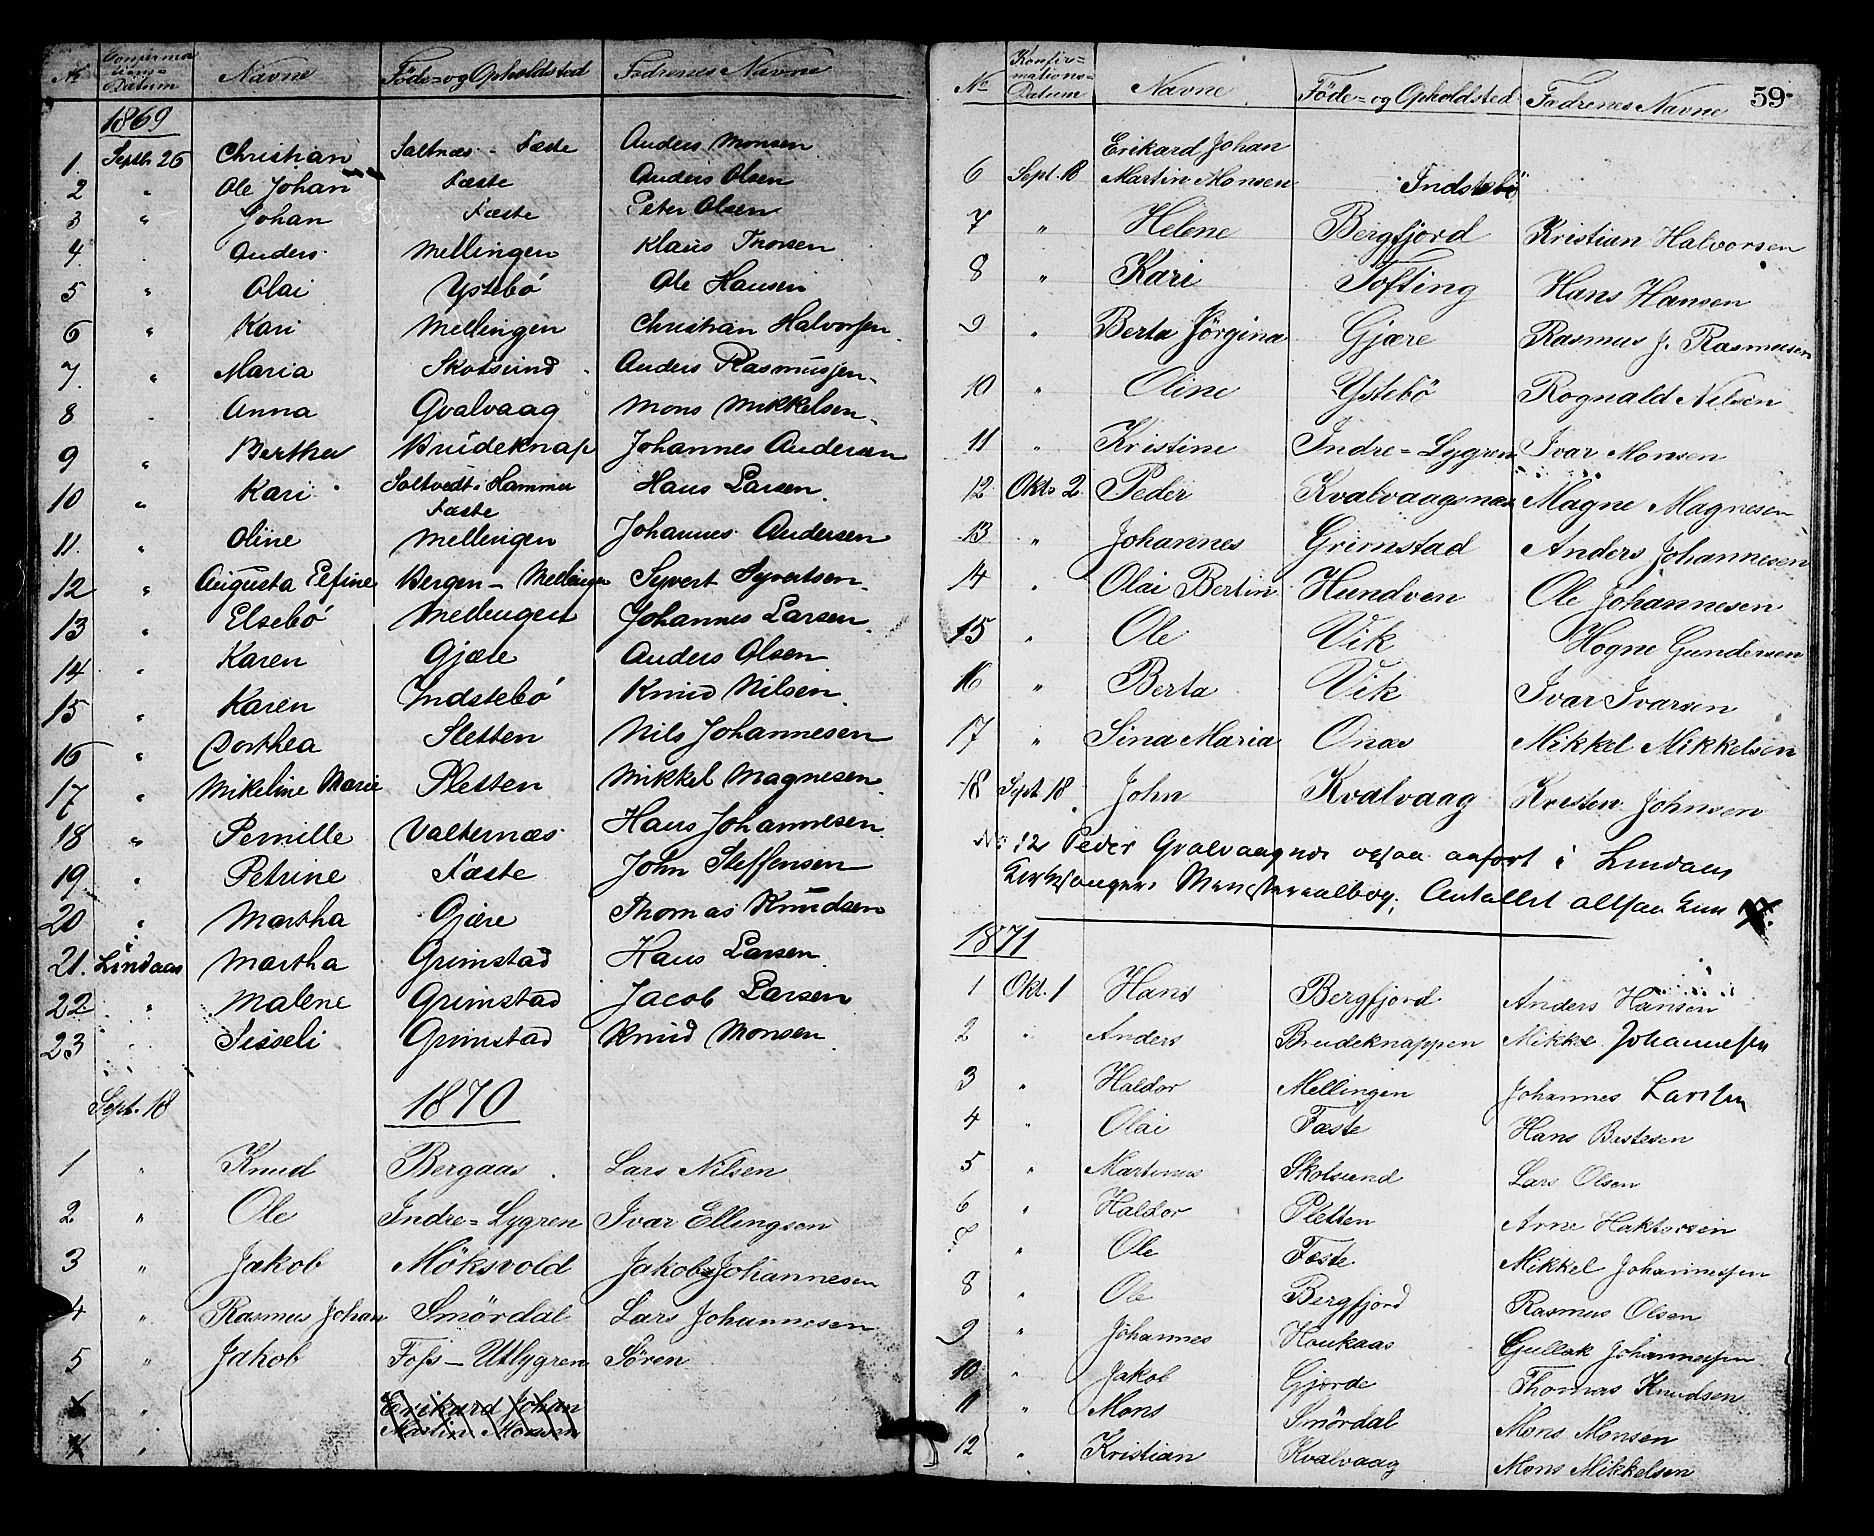 No Confirma-tions-Datum Navne Föde- og Opholdsted Fædrenes Navne
1869
1 Septb. 26 Christian Saltnæs - Fæste Anders Monsen
2 " Ole Johan Fæste Anders Olsen
3 " Johan Fæste Peter Olsen
4 Anders Mellingen Klaus Thorsen
5 " Olai Ystebö Ole Hansen
6 " Kari Mellingen Christian Halvorsen
7. " Maria Skotsund Anders Rasmussen
8 Anna Qvalvaag Mons Mikkelsen
9 " Bertha Brudeknap Johannes Andersen
10 " Kari Saltvedt i Hammer Hans Larsen
Fæste
11. " Oline Mellingen Johannes Andersen
12 " Augusta Pefine Bergen - Mellingen Syvert Syvertsen
13 " Elsebö Mellingen Johannes Larsen
14 " Karen Gjære Anders Olsen
15 " Karen Indstebö Knud Nilsen
16 " Dorthea Sletten Nils Johannesen
17 " Mikeline Marie Pletten Mikkel Magnesen
18 " Pernille Valternæs Hans Johannesen
19 " Petrine Fæste John Steffensen
20 " Martha Gjære Thomas Knudsen
21. Lindaas Martha Grimstad Hans Larsen
22 " Malene Grimstad Jacob Larsen
23 Sisseli Grimstad Knud Monsen
Sept. 18 1870
1 " Knud Bergaas Lars Nilsen
2 " Ole Indre=Lygren Ivar Ellingsen
3 " Jakob Möksvold Jakob Johannesen
4 " Rasmus Johan Smördal Lars Johannesen
5 " Jakob Foss - Utlygren Sören
" Erikard Johan
" Martin Monsen
59
No Konfir-mations-Datum Navne Föde- og Opholdsted Fædrenes Navne
Erikard Johan
6 Sept. 18 Martin Monsen Indstebö
7 " Helene Bergfjord Kristian Halvorsen
8 " Kari Tofting Hans Hansen
9 " Berta Jörgina Gjære Rasmus J. Rasmussen
10 " Oline Ystebö Rognald Nilsen
11 " Kristine Indre=Lygren Ivar Monsen
12 Okt. 2 Peder Kvalvaagsnæs Magne Magnesen
13 " Johannes Grimstad Anders Johannesen
14 " Olai Bertin Hundven Ole Johannesen
15 " Ole Vik Hogne Gundersen
16 " Berta Vik Ivar Ivarsen
17 " Sina Maria Onæs Mikkel Mikkelsen
18 Sept 18 John Kvalvaag Kristen Johnsen
No 12 Peder Qvalvaagnes ogsaa anfört i Lindaas
Kirkesangers Ministerialbog; Antallet altsaa kun 17.
1871
1 Okt. 1 Hans Bergfjord Anders Hansen
2 " Anders Brudeknappen Mikkel Johannessen
3 " Haldor Mellingen Johannes Larsen
4 " Olai Fæste Hans Bertesen
5 " Martinus Skotsund Lars Olsen
6 " Haldor Pletten Arne Haktorsen
7 " Ole Fæste Mikkel Johannessen
8 " Ole Bergfjord Rasmus Olsen
9 " Johannes Houkaas Gullak Johannessen
10 " Jakob Gjerde Thomas Knudsen
11 " Mons Smördal Mons Monsen
12 " Kristian Kvalvaag Mons Mikkelsen